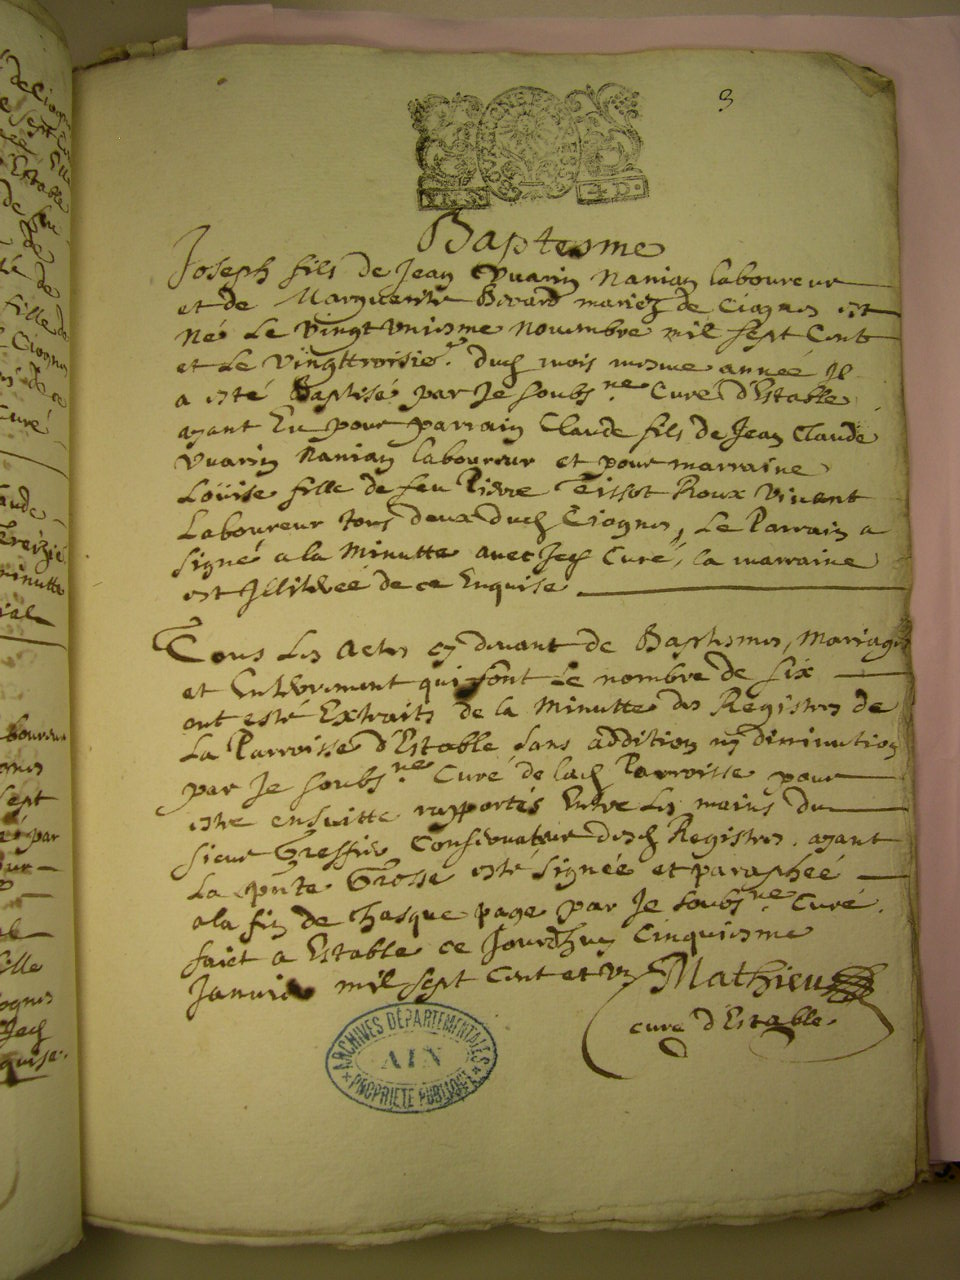 3
Baptesme
Joseph fils de Jean Vuarin Nanian laboureur
et de Marguerite Bovard mariez de Ciognes est
né Le vingt vniesme nouembre mil sept Cent
et Le vüingttroisie.e dud mois mesme année Il
a esté Baptisé par Je soubs.ne Curé d'Estable
ayant Eu pour parrain Claude fils de Jean Claude
Vuarin Nanian laboureur et pour marraine
Loüise fille de feu Pierre Teissot Roux viuant
Laboureur tous deux dud Ciognes, Le Parrain a
signé a la Minutte auec Jed Curé, la marraine
est Jllitérée de ce Enquise
Tous Les Actes cy deuant de Baptesmes, Mariages
et Enterrement qui sont Le nombre de six
ont esté Extraits de la Minutte des Registres de
La Parroisse d'Estable sans addition ny diminution
par Je soubs.ne Curé de lad Parroisse pour
estre ensuitte rapportés Entre Les mains du
sieur Greffier Conseruateur desd Registres, ayant
La pnte Grosse esté signée et paraphée
a la fin de chasque page par Je soubs.ne Curé.
faict a Estable ce Jourdhuy Cinquiesme
Januier mil sept Cent et vn Mathieu
curé d'Estable.
ARCHIVES DÉPARTEMENTALES
AIN
PROPRIÉTÉ PUBLIQUE